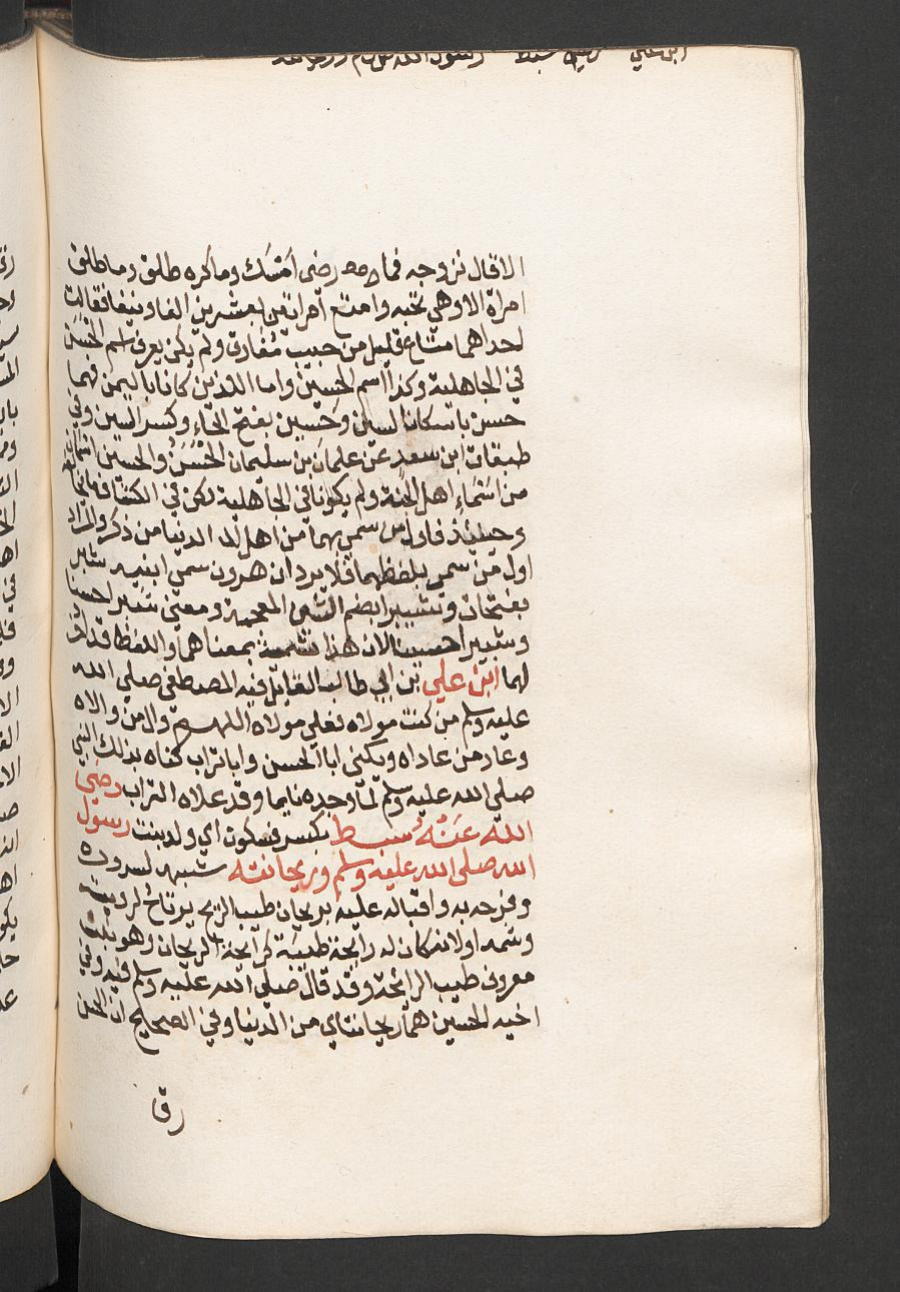 ابن علي رضي سبط رسول الله
الا قال نزوجه فما رضي امسك وما كره طلق وما طلق
امراة الا وهي تحبه وامتع امراتين بعشرين الفا و فقالت
احداهما متاع قليل من حبيب مفارق ولم يكن يعرف اسم الحسن
في الجاهلية وكذا اسم الحسين واما اللذين كانا باليمن فهما
حسن باسكان السين وحسين بفتح الحاء وكسر السين وفي
طبقات ابن سعد عن بن سليمان الحسن والحسين اسمان
من اسماء اهل الجنة ولم يكونا في الجاهلية لكن في الكشاف
وحينئذ فاول من سمي بهما من اهل الدنيا من ذكر والمراد
اول من سمي بلفظهما فلا يرد ان هرون سمي ابنيه شبر
بفتحات وشبيرا بضم الشين المعجمة ومعنى شبر احسنا
وشبير احسينا لان هذا تسمية بمعناهما واللفظ
لهما ابن علي بن ابي طالب القايل فيه المصطفى صلى الله
عليه وسلم من كنت مولاه فعلي مولاه اللهم وال من والاه
وعاد من عاداه ويكنى ابا الحسن وابا تراب كناه بذلك النبي
صلى الله عليه وسلم لما وجده نايما وقد علاه التراب رضي
الله عنه سبط بكسر فسكون اي ولد بنت رسول
الله صلى الله عليه وسلم وريحانته شبهه لسروره
وفرحه به واقباله عليه بريحان طيب الريح يرتاح لرويته
وشمه اولانه كان له رايحة طيبة كرايحة الريحان وهو نبت
معروف طيب الرائحة وقد قال صلى الله عليه وسلم فيه وفي
اخيه الحسين هما ريحانتاي من الدنيا وفي الصحايح ان الحسن
رق